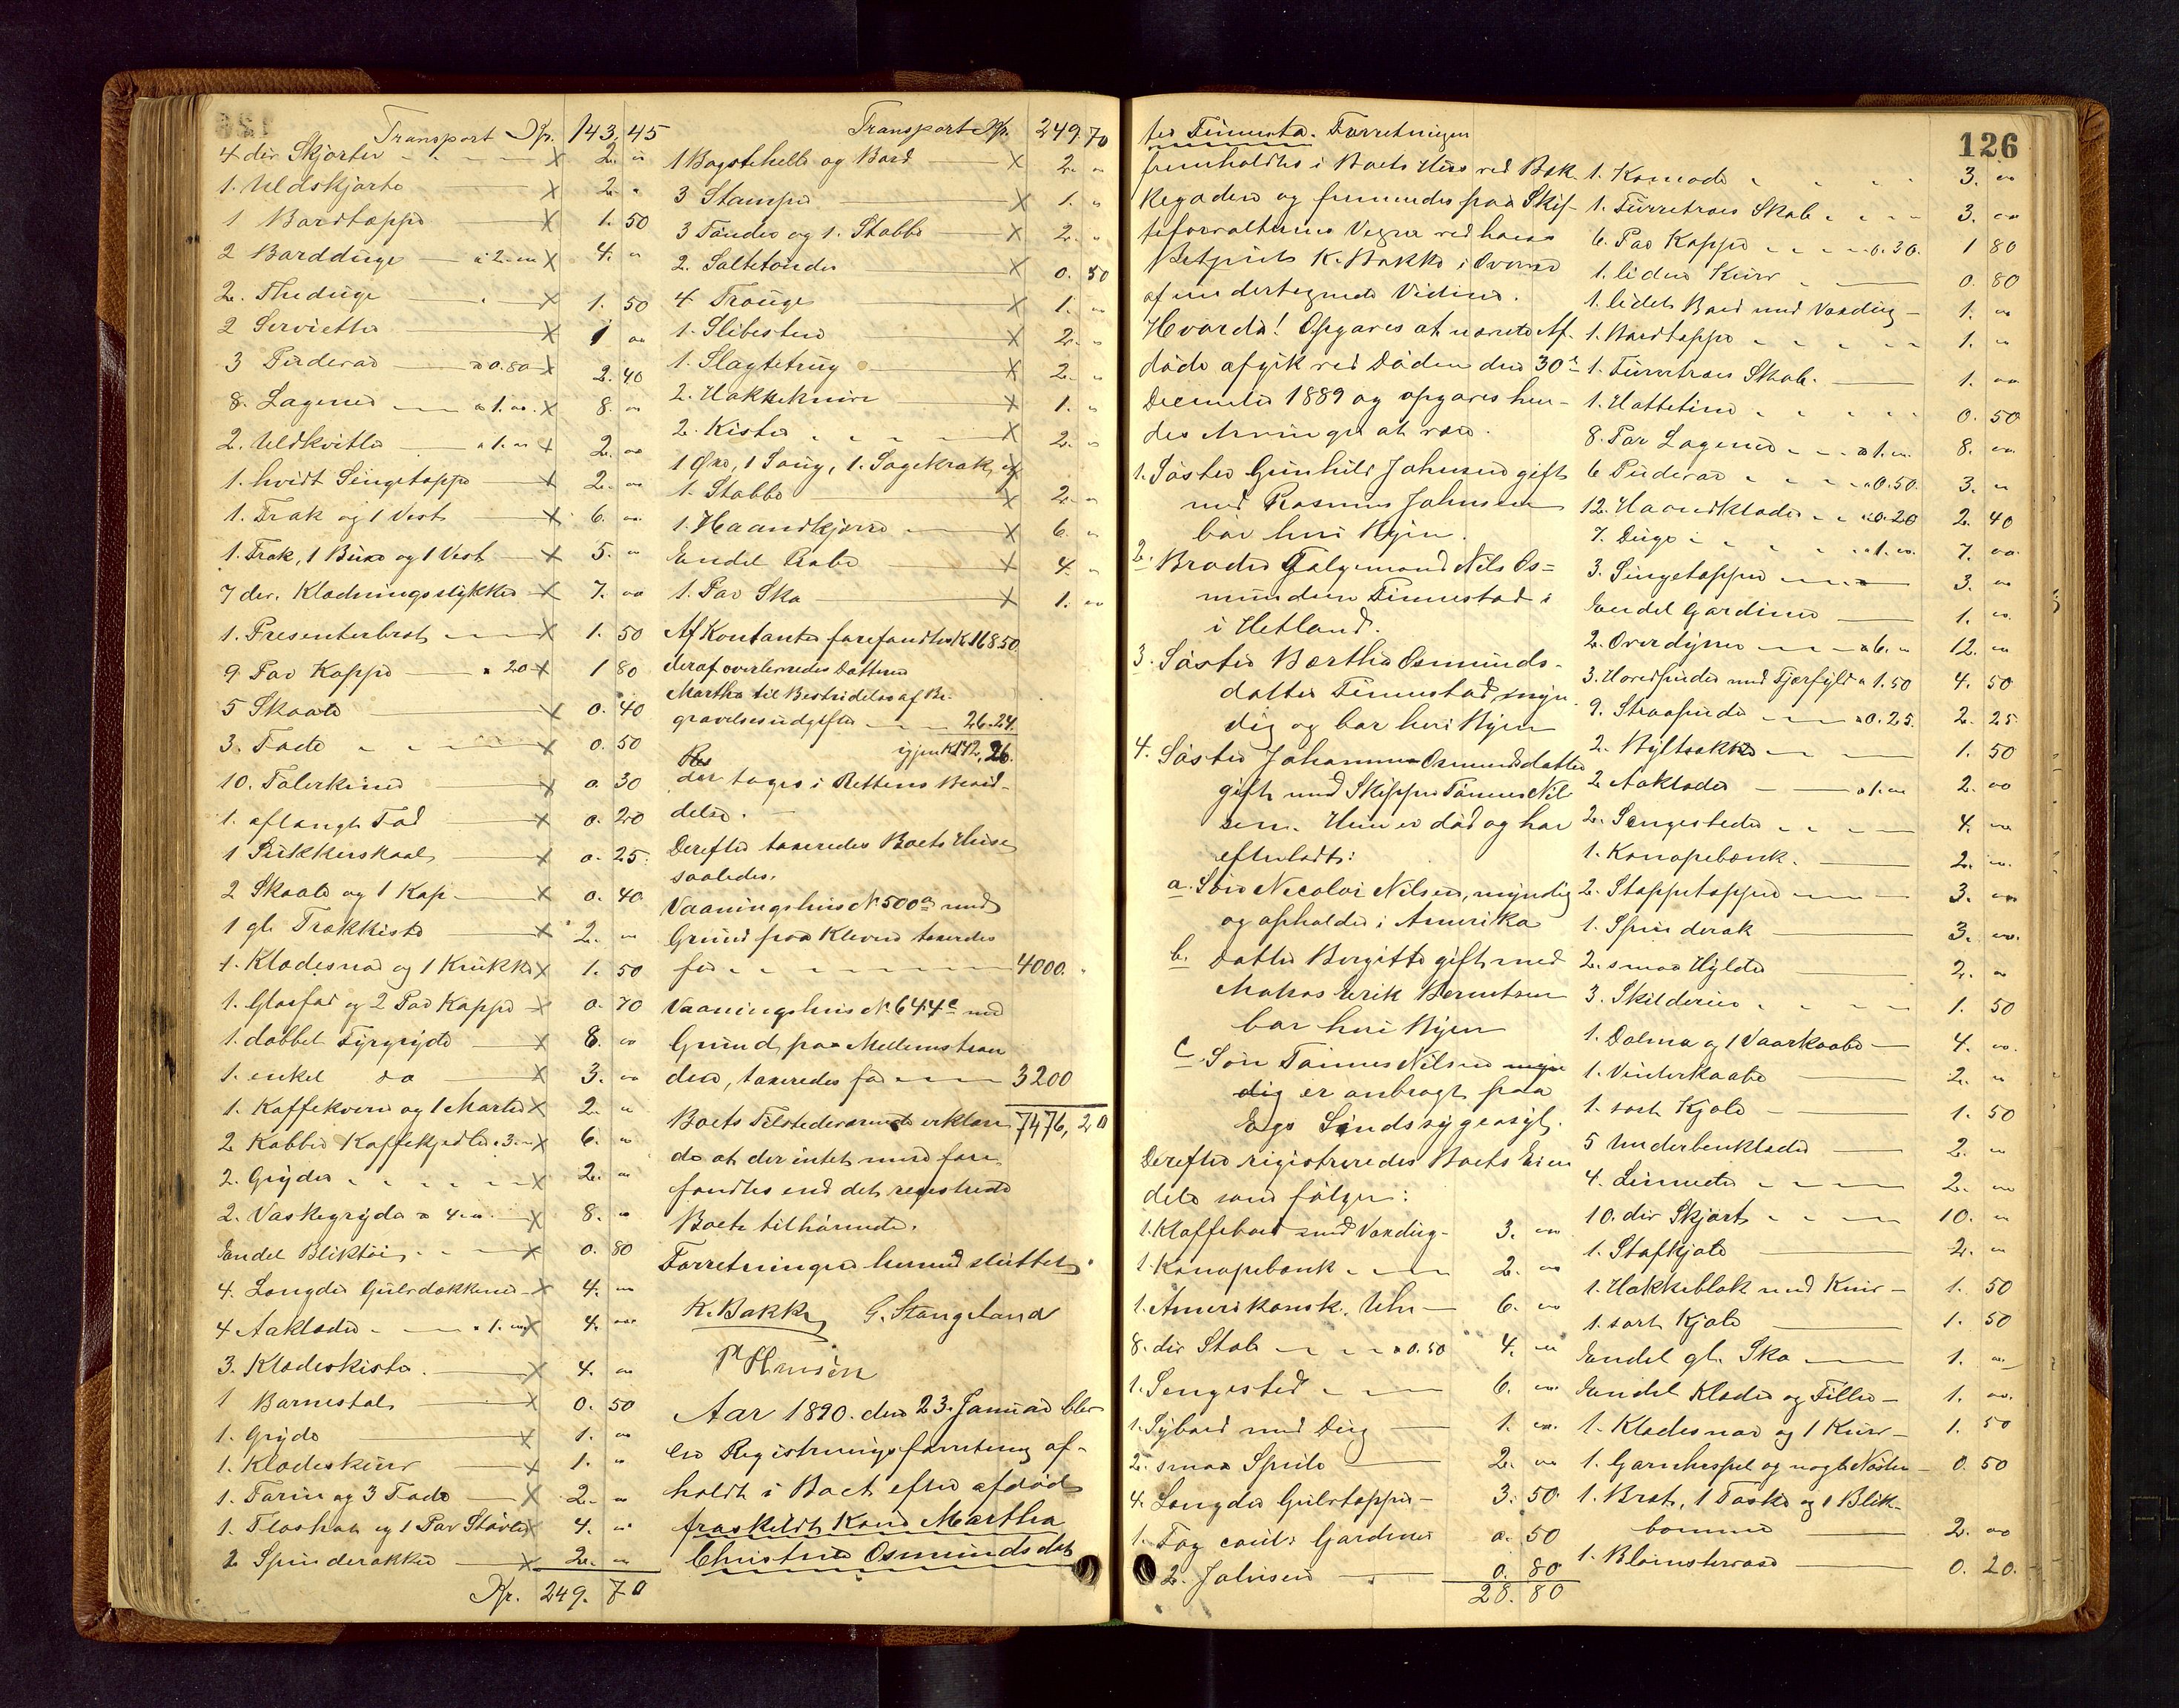 Transport Kr. 143,45
4 div Skjorter - - - x 2. "
1. Uldskjorte - x 2. "
1 Bordtæppe - x 1. 50
2 Bordduge - a 2. " x 4. "
2. Theduge - x 1. 50
2 Servietter - x 1 "
3 Puder - a 0.80 x 2. 40
8. Lagener - a 1. " x 8. "
2. Uldkvitler - a 1. " x 2. "
1. hvidt Sengetæppe - x 2. "
1. Frak og 1 Vest - x 6. "
1. Frak, 1 Buxe og 1 Vest x 5. "
7 div. Klædningsstykker x 7. "
1. Presenterbret - x 1. 50
9 Par Koppe - a 20 x 1 80
5 Skaale - x 0. 40
3. Fade - x 0. 50
10. Talerkener - x 0. 30
1. aflangt Fad - x 0. 20
1 Sukkerskaal - x 0. 25.
2 Skaale og 1 Kop - x 0. 40
1 gl. Trækkiste - x 2. "
1. Klædesnor og 1 Krukke x 1. 50
1. Glasfad og 2 Par Koppe x 0. 70
1. dobbel Tyrgryde - x 8. "
1. enkel do - x 3. "
1. Kaffekvern og 1 Morter x 2. "
2 Kobber Kaffekjedler a 3. " x 6. "
2. Gryder - x 2. "
2. Vaskegryder a 4. " x 8. "
Endel Bliktøi - x 0. 80
4. Længder Gulvdækkener x 4. "
4 Aaklæder - a 1. " x 4. "
3. Klædeskister - x 4. "
1 Barnestol - x 0. 50
1. Gryde - x 1. "
1. Klædeskurv - x 1. "
1. Tarin og 3 Fade - x 2. "
1. Floshat og 1 Par Støvler x 4. "
2 Spinderokker - x 2. "
Kr. 249. 70
Transport Kr. 249.70
1 Bagstehelle og Bord - x 2. "
3 Stamper - x 1. "
3 Tønder og 1. Stabbe - x 2. "
2. Saltetønder - x 0. 50
4 Trouge - x 1. "
1. Slibesten - x 2. "
1. Slagtetrug - x 2. "
2. Hakkeknive - x 1. "
2. Kister - x 2. "
1 Øxe, 1 Saug, 1. Sagekrak, og
1. Stabbe - x 2. "
1. Haandkjærre - x 6. "
Endel Rebe - x 4. "
1. Par Sko - x 1. "
Af Kontanter forefandtes Kr 168.50
deraf overleveredes Datteren
Martha til Bestridelse af Be-
gravelsesudgifter - 26.24
igjen Kr 142,26.
der toges i Rettens Besid-
delse.
Derefter taxeredes Boets Huse
saaledes.
Vaaningshus No 500a med
Grund paa Kleven taxeredes
for - 4000. "
Vaaningshus No. 644c med
Grund paa Mellemstran
den, taxeredes for - 3200
Boets Tilstedeværende erklære 7476,20
de at der intet mere fore
fandtes end det registrerede
Boet tilhørende.
Forretningen hermed sluttet.
K. Bakke G. Stangeland
P Hansen
Aar 1890. den 23. Januar blev
en Registreringsforretning af-
holdt i Boet efter afdøde
fraskildt Kone Martha
Christine Osmundsdat
126
ter Finnesta. Forretningen
fremholdtes i Boets Hus ved Bak-
kegaden og fremmedes paa Skif-
teforvalterens Vegne ved hans
Betjent K. Bakke i Overvær
af undertegnede Vidner.
Hvorda! Opgaves at nævnte Af-
døde afgik ved Døden den 30te
December 1889 og opgaves hen-
des Arvinger at være.
1. Søster Gunhild Johnsen gift
med Rasmus Johnsen
bor her i Byen.
2. Broder Fælgemand Nils Os-
mundsen Finnestad i
i Hetland.
3. Søster Berthe Osmunds-
datter Finnestad, myn
dig og bor her i Byen
4. Søster Johanne Osmundsdatter
gift med Skipper Tønnes Nil
sen. Hun er død og har
efterladt:
a. Søn Nicolai Nilsen, myndig
og opholder i Amerika
b. Datter Birgitte gift med
Matros Erik Berntsen
bor her i Byen
c. Søn Tønnes Nilsen myn
dig er anbragt paa
Egs Sindssygeasyl.
Derefter registreredes Boets Eien
dele som følger:
1. Kaffebord med Voxdug - 3. "
1. Kanapebænk - 2. "
1. Amerikansk. Uhr - 6. "
8. div Stole - a 0.50 4. "
1. Sengested - 6. "
1. Sybord med Dug - 1. "
2. smaa Speile - 2. "
4. Længder Gulvtæpper - 3. 50
1. Fag coul: Gardiner 0. 50
2. Jalusier - 0. 80
28. 80
1. Komode - 3. "
1. Furretræes Skab - 3. "
6. Par Koppe - a 0.30. 1 80
1. liden Kurv - 0. 80
1. lidet Bord med Voxdug - 1. "
1. Bordtæppe - 1. "
1. Furretræes Skab. - 1. "
1. Hattetine - 0. 50
8. Par Lagener - a 1. " 8. "
6 Puder - a 0.50. 3. "
12. Haandklæder - a 0.20 2. 40
7. Duge - a 1. " 7. "
3. Sengetæpper - 3. "
Endel Gardiner - 1. "
2. Overdyner - a 6. " 12. "
3. Hovedpuder med Fjærfyld a 1.50 4. 50
9. Straapuder - a 0.25. 2. 25
2. Byltsække - 1. 50
2 Aaklæder - a 1. " 2. "
2. Sengesteder - 4. "
1. Kanapebænk. - 2. "
2. Stoppetæpper - 3. "
1. Spinderok - 3. "
2. smaa Hylder - 2. "
3. Skilderier - 1. 50
1. Dolma og 1 Vaarkaabe - 4. "
1. Vinterkaabe - 2. "
1. sort Kjole - 1. 50
5 Underbenklæder - 2. "
4. Linneder - 2. "
10. div Skjørt - 10. "
1. Stofkjole - 2. "
1. Hakkeblok med Kniv - 1. 50
1. sort Kjole - 1. 50
Endel gl. Sko - 1. "
Endel Klæder og Filler - 1. "
1. Klædesnor og 1 Kurv - 1. 50
1. Garnhespel og nogle Nøster - 0. 50
1. Bret, 1 Taske og 1 Blik-
bomme - 2. "
1. Blomstervase - 0. 20.